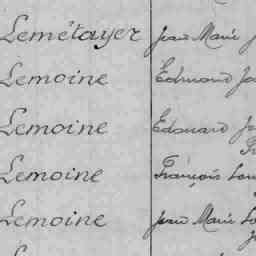 Lemétayer Jean Marie
Lemoine Edmond
Lemoine Edouard
Lemoine François
Lemoine Jean Marie